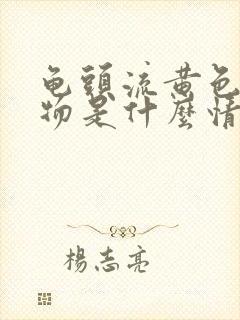 龟頭流黄色
物是什麼情
楊志亮